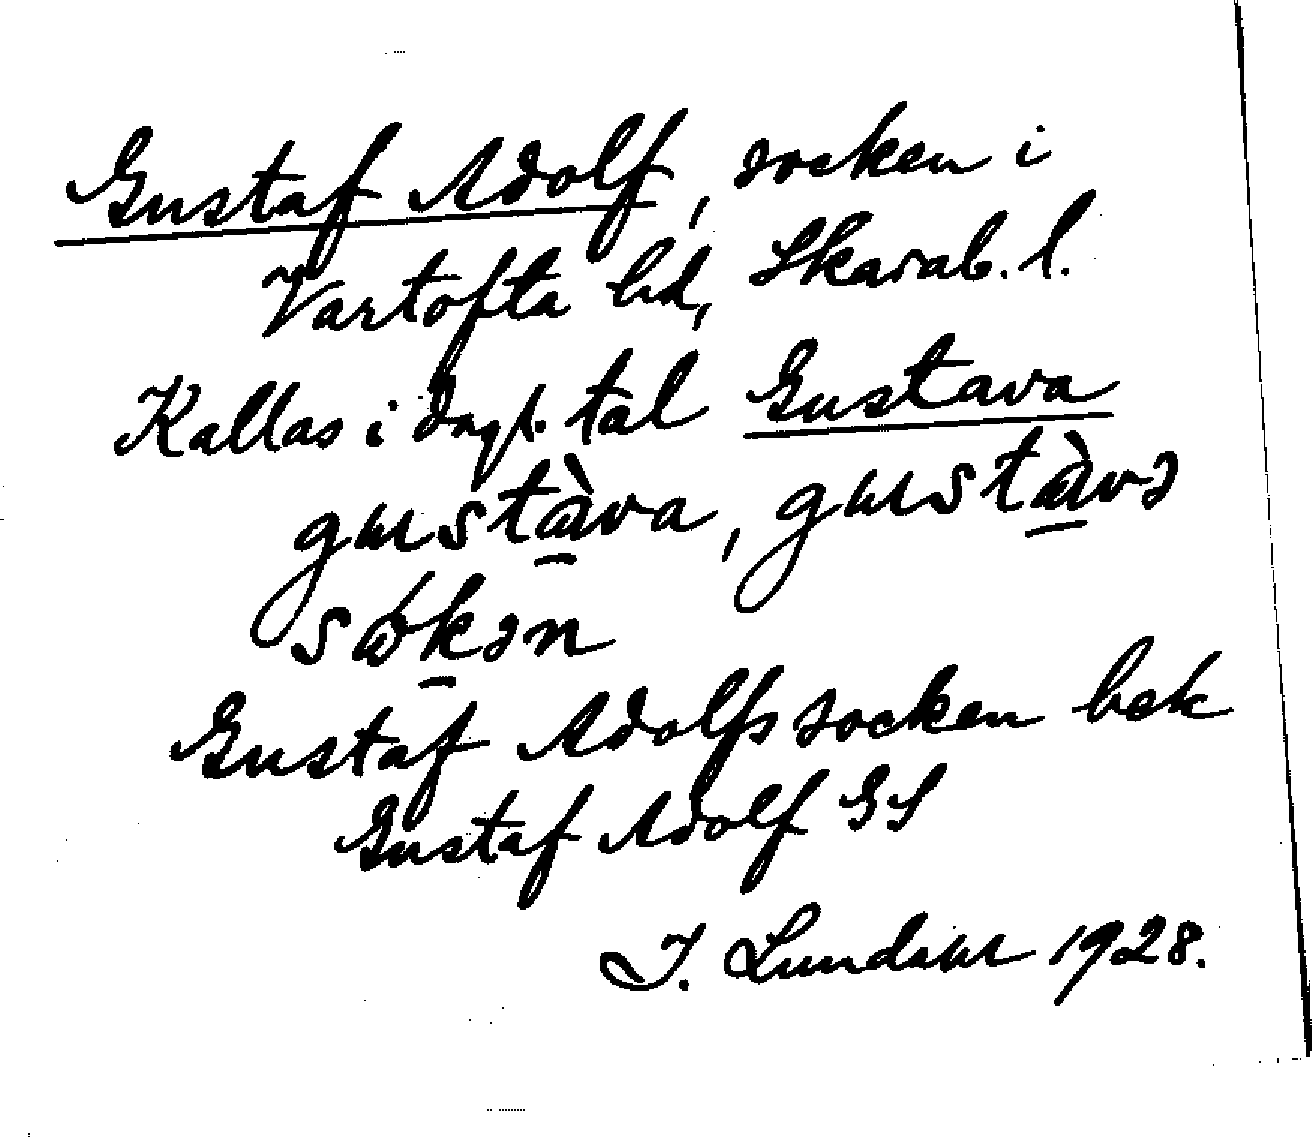 Gustaf Adolf, socken i
Vartofta hd, Skarab. l.
Kallas i dagl. tal Gustava
gustàva, gustàvə
såkən
Gustaf Adolfs socken bek
Gustaf Adolf GS
I. Lundahl 1928.